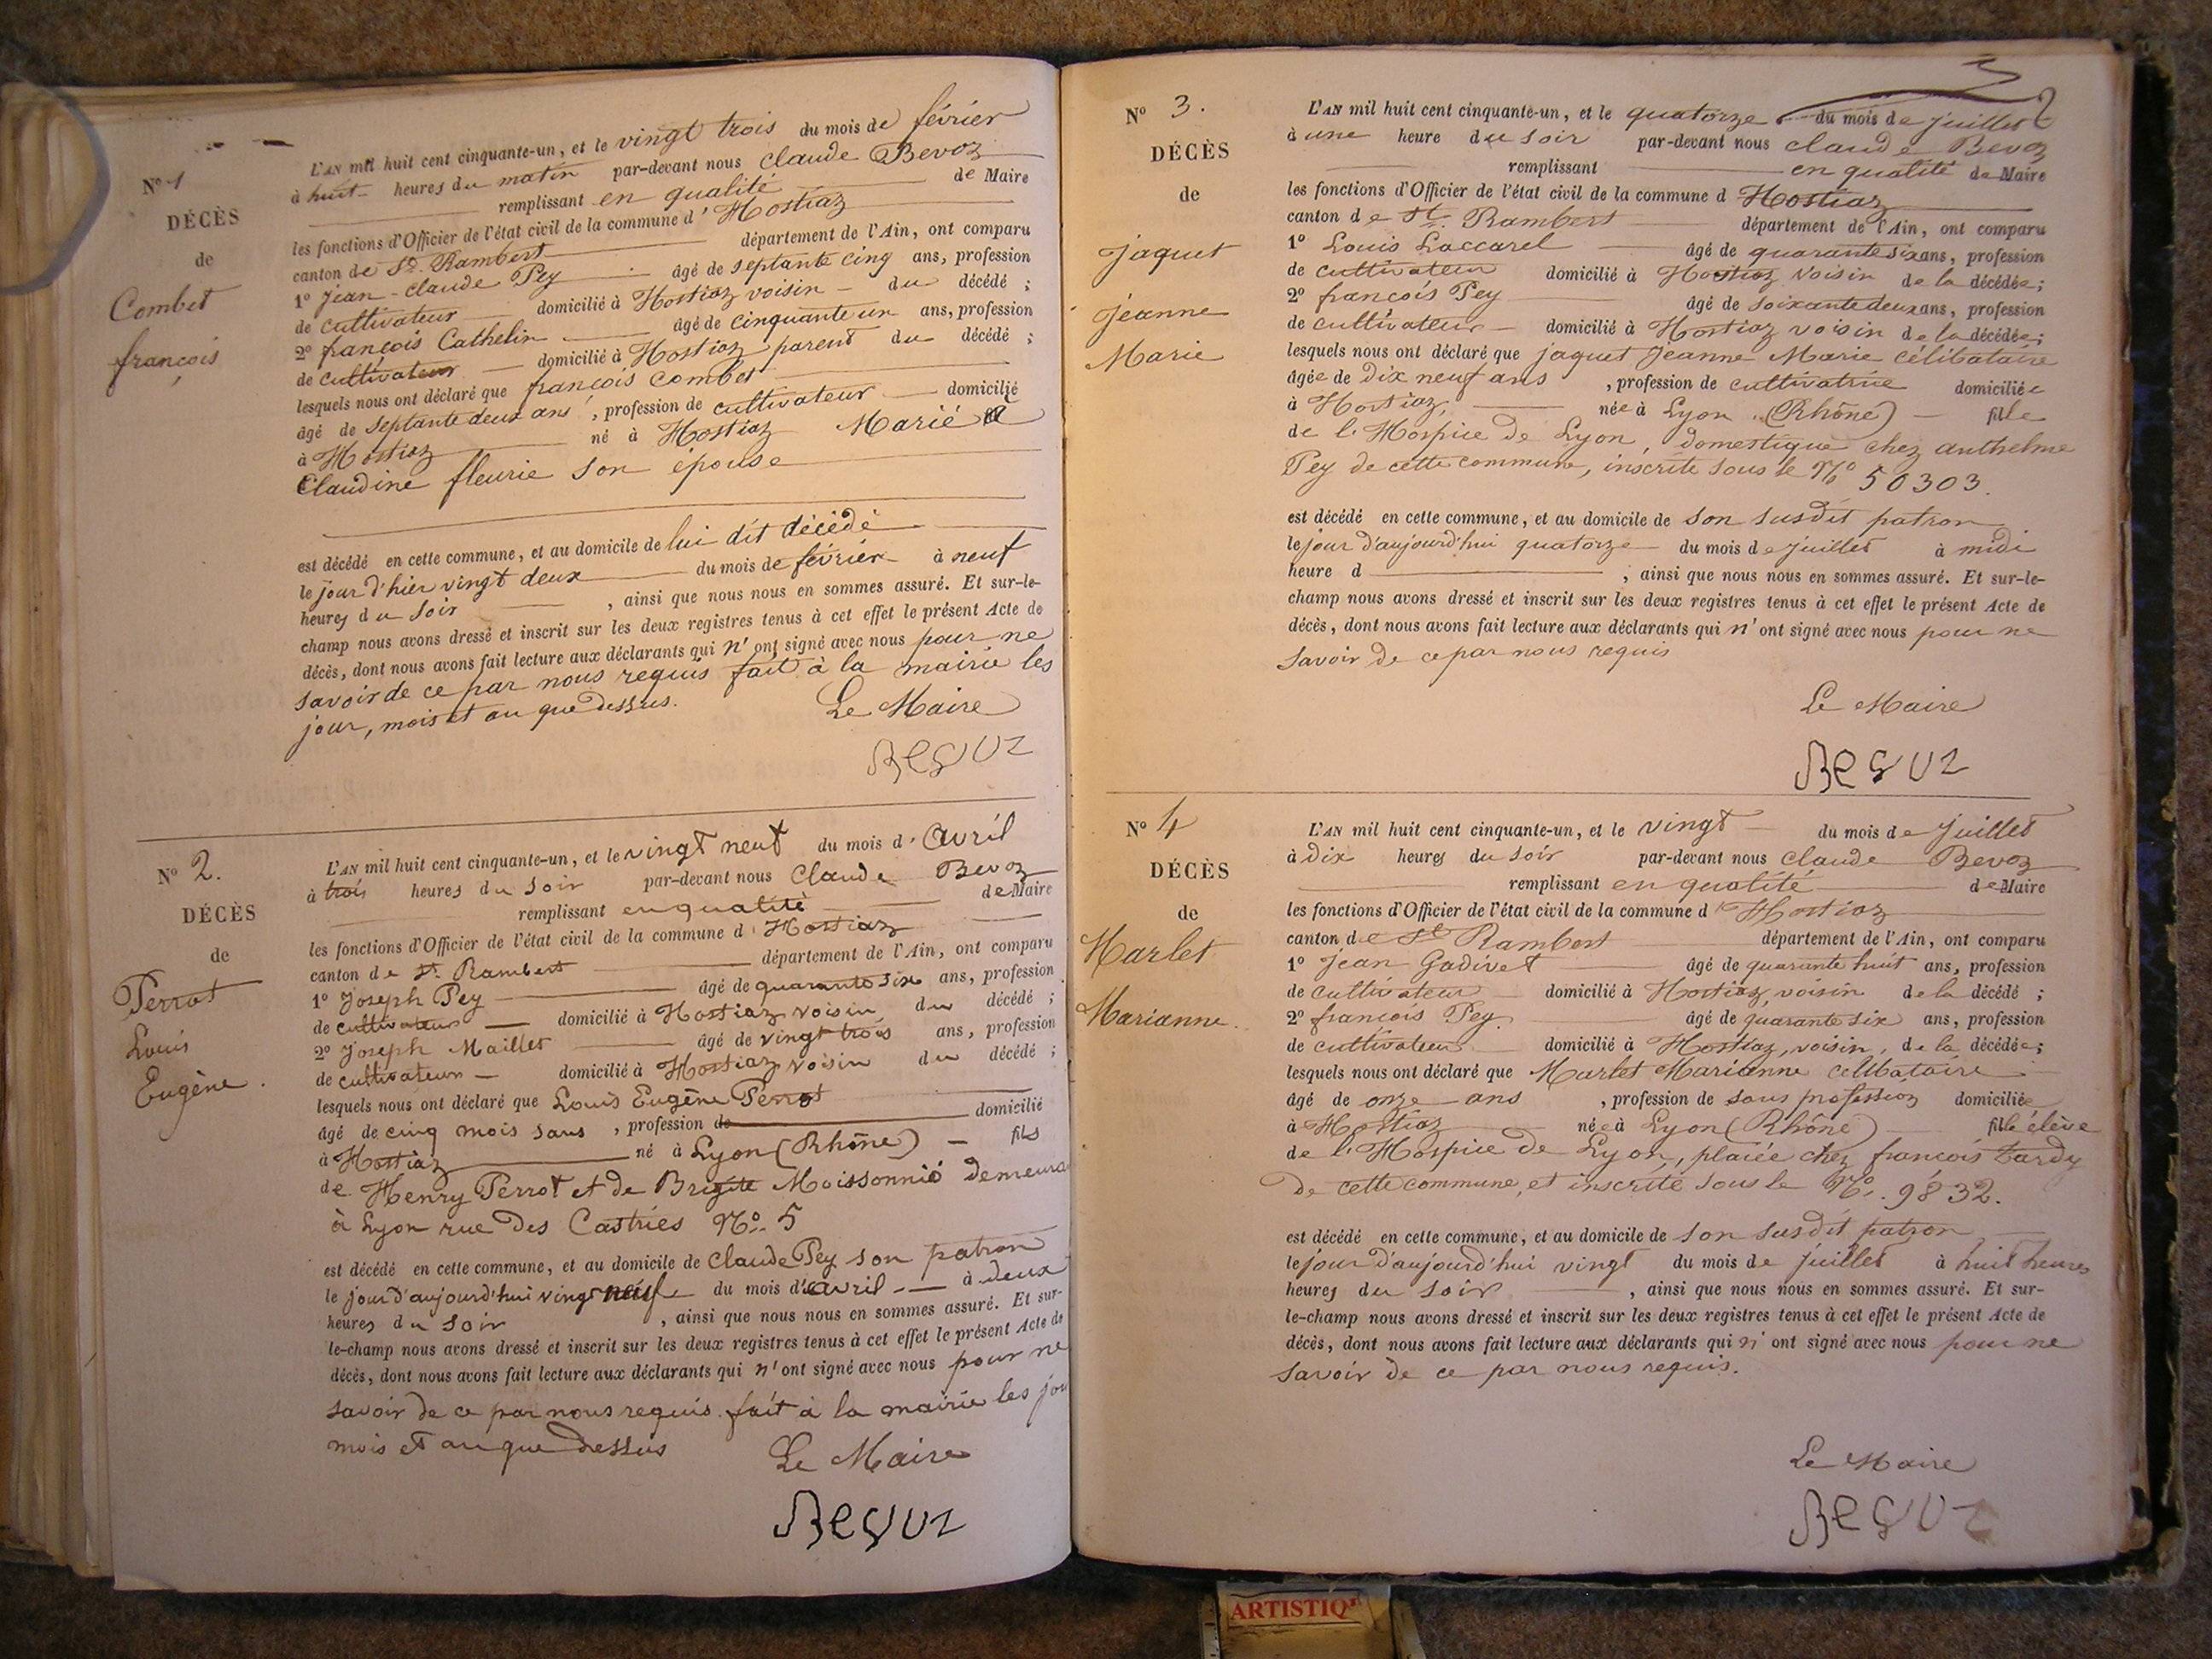 N° 1
DÉCÈS
de
Combet
françois
L'AN mil huit cent cinquante-un, et le vingt trois du mois de février
à huit heures du matin par-devant nous Claude Bevoz
remplissant en qualité de Maire
les fonctions d'Officier de l'état civil de la commune d'Hostiaz
canton de St. Rambert département de l'Ain, ont comparu
1° Jean-Claude Pey âgé de septante cinq ans, profession
de cultivateur domicilié à Hostiaz voisin du décédé ;
2° françois Cathelin âgé de cinquante un ans, profession
de cultivateur domicilié à Hostiaz parent du décédé ;
lesquels nous ont déclaré que françois Combet
âgé de septante deux ans, profession de cultivateur domicilié
à Hostiaz né à Hostiaz Marié à
Claudine fleurie son épouse
est décédé en cette commune, et au domicile de lui dit décédé
le jour d'hier vingt deux du mois de février à neuf
heures du soir, ainsi que nous nous en sommes assuré. Et sur-le-
champ nous avons dressé et inscrit sur les deux registres tenus à cet effet le présent Acte de
décès, dont nous avons fait lecture aux déclarants qui n'ont signé avec nous pour ne
savoir de ce par nous requis fait à la mairie les
jour, mois et an que dessus.
Le Maire
Bevoz
N° 2.
DÉCÈS
de
Perrot
Louis
Eugène.
L'AN mil huit cent cinquante-un, et le vingt neuf du mois d'avril
à trois heures du soir par-devant nous Claude Bevoz
remplissant en qualité de Maire
les fonctions d'Officier de l'état civil de la commune d'Hostiaz
canton de St. Rambert département de l'Ain, ont comparu
1° Joseph Pey âgé de quarante six ans, profession
de cultivateur domicilié à Hostiaz voisin du décédé ;
2° Joseph Maillet âgé de vingt trois ans, profession
de cultivateur domicilié à Hostiaz voisin du décédé ;
lesquels nous ont déclaré que Louis Eugène Perrot
âgé de cinq mois sans, profession de domicilié
à Hostiaz né à Lyon (Rhône) fils
de Henry Perrot et de Brigite Moissonnié demeura
à Lyon rue des Castries N° 5
est décédé en cette commune, et au domicile de Claude Pey son patron
le jour d'aujourd'hui vingt neuf du mois d'avril à deux
heures du soir, ainsi que nous nous en sommes assuré. Et sur-
le-champ nous avons dressé et inscrit sur les deux registres tenus à cet effet le présent Acte de
décès, dont nous avons fait lecture aux déclarants qui n'ont signé avec nous pour ne
savoir de ce par nous requis. fait à la mairie les jou
mois et an que dessus
Le Maire
Bevoz
3
N° 3.
DÉCÈS
de
Jaquet
Jeanne
Marie
L'AN mil huit cent cinquante-un, et le quatorze du mois de juillet
à une heure du soir par-devant nous Claude Bevoz
remplissant en qualité de Maire
les fonctions d'Officier de l'état civil de la commune d Hostiaz
canton de St. Rambert département de l'Ain, ont comparu
1° Louis Laccarel âgé de quarante six ans, profession
de cultivateur domicilié à Hostiaz voisin de la décédée ;
2° françois Pey âgé de soixante deux ans, profession
de cultivateur domicilié à Hostiaz voisin de la décédée ;
lesquels nous ont déclaré que Jaquet Jeanne Marie célibataire
âgée de dix neuf ans, profession de cultivatrice domiciliée
à Hostiaz, née à Lyon (Rhône) fille
de l'Hospice de Lyon, domestique chez anthelme
Pey de cette commune, inscrite sous le N° 50303.
est décédé en cette commune, et au domicile de son susdit patron
le jour d'aujourd'hui quatorze du mois de juillet à midi
heure d, ainsi que nous nous en sommes assuré. Et sur-le-
champ nous avons dressé et inscrit sur les deux registres tenus à cet effet le présent Acte de
décès, dont nous avons fait lecture aux déclarants qui n'ont signé avec nous pour ne
savoir de ce par nous requis
Le Maire
Bevoz
N° 4
DÉCÈS
de
Marlet
Marianne.
L'AN mil huit cent cinquante-un, et le vingt du mois de juillet
à dix heures du soir par-devant nous Claude Bevoz
remplissant en qualité de Maire
les fonctions d'Officier de l'état civil de la commune d'Hostiaz
canton de St Rambert département de l'Ain, ont comparu
1° Jean Godivet âgé de quarante huit ans, profession
de cultivateur domicilié à Hostiaz, voisin de la décédé ;
2° françois Pey. âgé de quarante six ans, profession
de cultivateur domicilié à Hostiaz, voisin, de la décédée ;
lesquels nous ont déclaré que Marlet Marianne célibataire
âgé de onze ans, profession de sans profession domiciliée
à Hostiaz née à Lyon (Rhône) fille élève
de l'Hospice de Lyon, placée chez françois Tardy
de cette commune, et inscrite sous le N°. 9832.
est décédé en cette commune, et au domicile de son susdit patron
le jour d'aujourd'hui vingt du mois de juillet à huit heures
heures du soir, ainsi que nous nous en sommes assuré. Et sur-
le-champ nous avons dressé et inscrit sur les deux registres tenus à cet effet le présent Acte de
décès, dont nous avons fait lecture aux déclarants qui n'ont signé avec nous pour ne
savoir de ce par nous requis.
Le Maire
Bevoz
ARTISTIQ